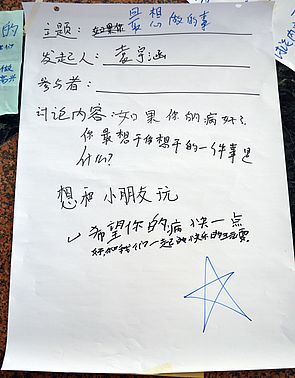 最想做的事
主题：如果你
发起人：袁宇涵
参与者：
讨论内容：如果你的病好了
你最想干你想干的一件事是
什么？
想和小朋友玩
✓希望你的病快一点
好和我们一起的快乐的玩耍
的
做